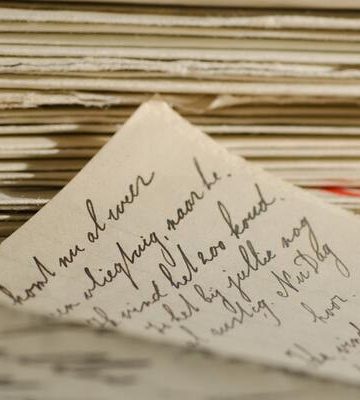 komt nu al weer
een vliegtuig, naar be.
ik vind het zoo koud.
is het bij jullie nog
al rustig. Nu dag
hoor